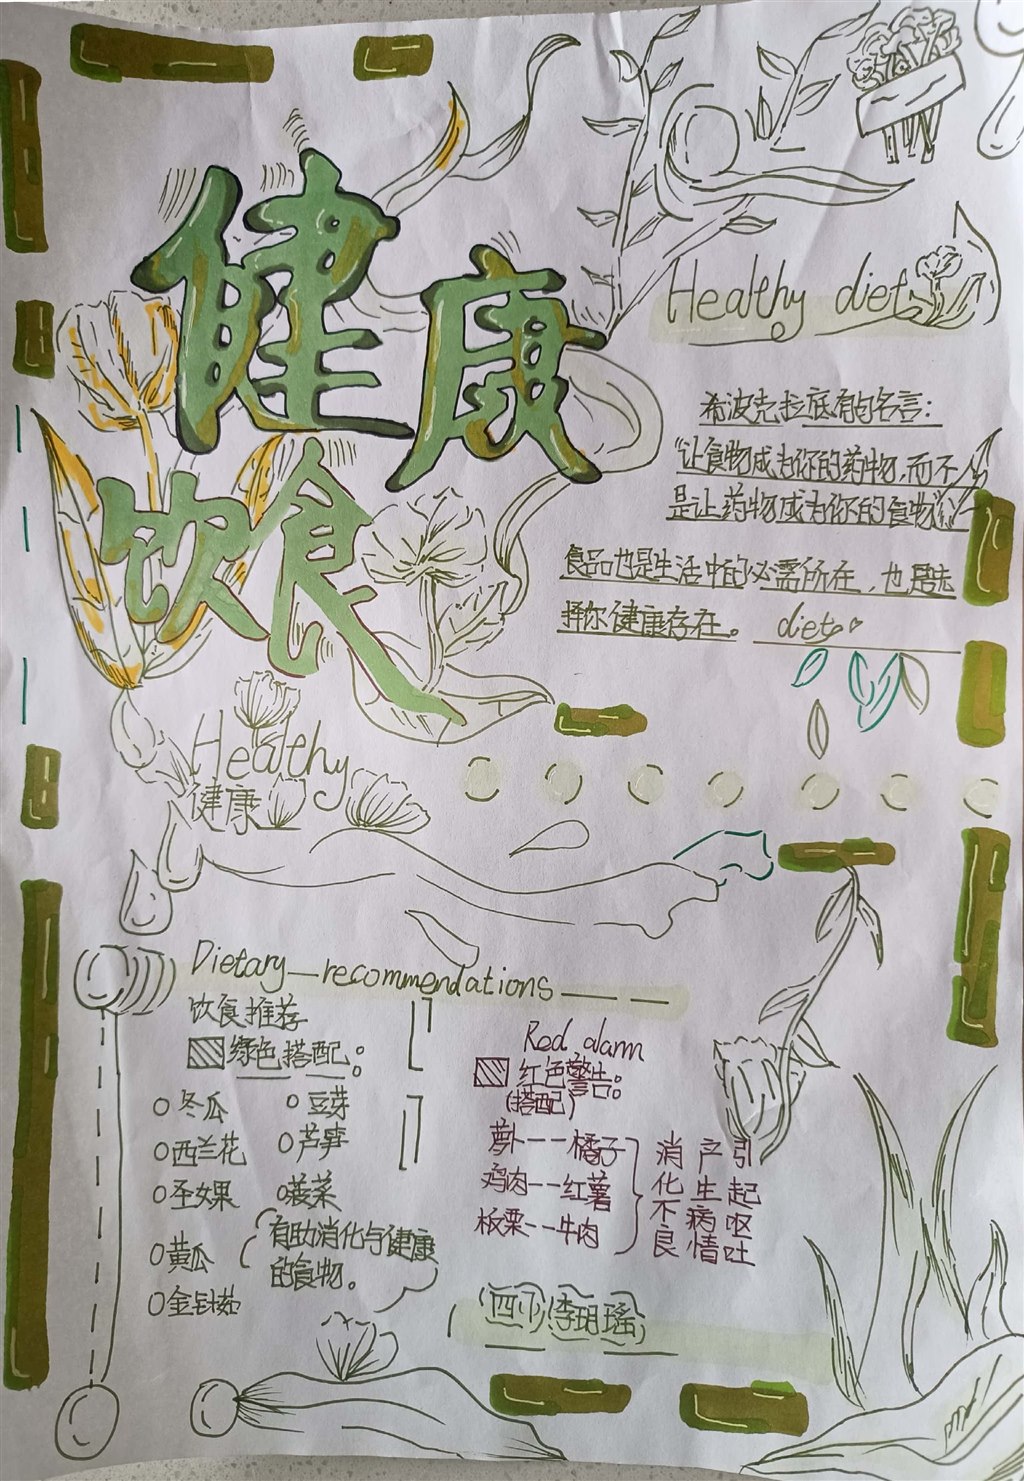 健康
饮食
Healthy diet
希波克拉底有的名言:
“让食物成为你的药物,而不
是让药物成为你的食物”
食品也是生活中的必需所在,也是
择你健康存在。 diet
Healthy
健康
Dietary—recommendations
饮食推荐
绿色搭配:
冬瓜 豆芽
西兰花 芦笋
圣女果 菠菜
黄瓜
金针菇
有助消化与健康
的食物。
Red alarm
红色警告:
(搭配)
萝卜--橘子
鸡肉--红薯
板栗--牛肉
消化不良
产生病情
引起呕吐
李玥瑶